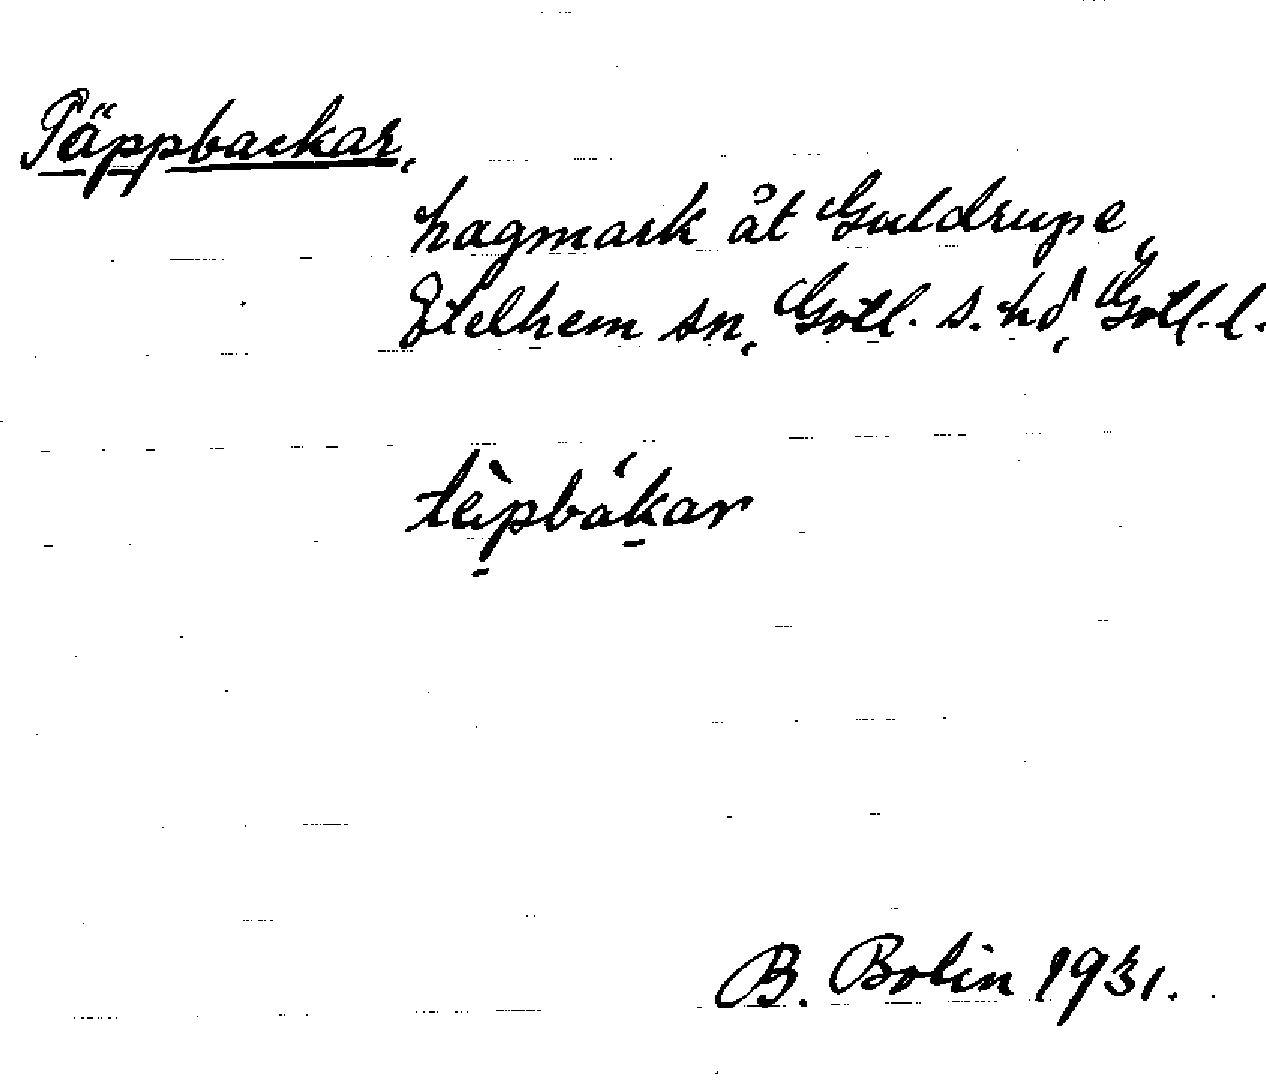 Täppbackar,
hagmark åt Guldrupe,
Etelhem sn, Gotl. s. hd, Gotl. l.
tèpbákar
B. Bolin 1931.